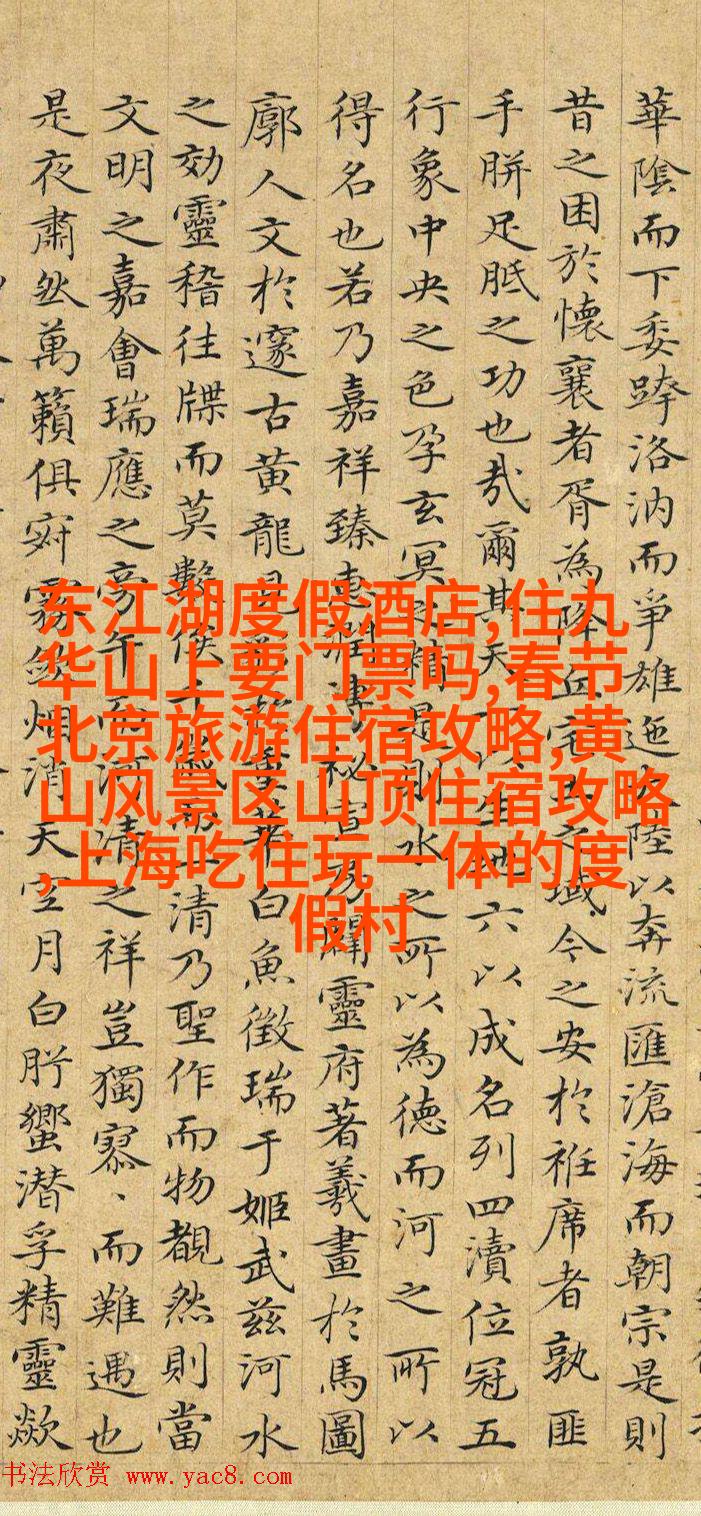 華陰而下委跨洛汭而爭雄迤陸以奔流匯滄海而朝宗是則
昔之困於懷襄者胥為降丘宅之域今之安於袵席者孰匪
手胼足胝之功也哉爾其天以生地六以成名列四瀆位冠五
行象中央之色孕玄冥精是則水之所以為德而河之所以
得名也若乃嘉祥臻秘靈府著羲畫於馬圖
廓人文於邃古黃龍見白魚徵瑞于姬武茲河水
之効靈稽往牒而莫數清乃聖作而物覩然則當
文明之嘉會瑞應之旁午而河清之祥豈獨寥、而難遇也
是夜肅然萬籟俱寂霧斂烟消天空月白肸蠁潛孚精靈歘
东江湖度假酒店,住九
华山上要门票吗,春节
北京旅游住宿攻略,黄
山风景区山顶住宿攻略
,上海吃住玩一体的度
假村
书法欣赏 www.yac8.com